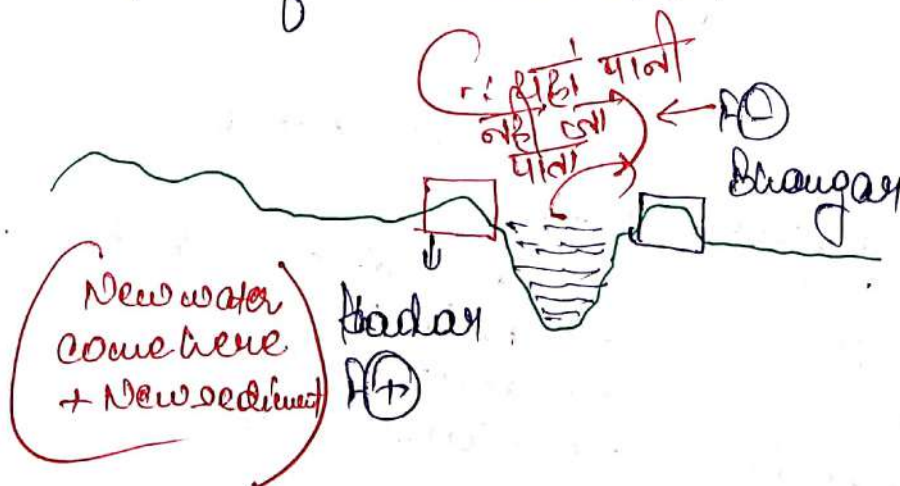 ∵ यहां पानी
नहीं जा
पाता
F⊖
Bhangar
New water
come here
+ New sediment
Khadar
F⊕